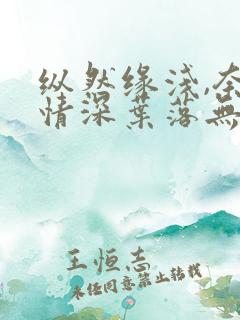 纵然缘浅,奈
情深葉落無
王恒志
未经同意禁止转载